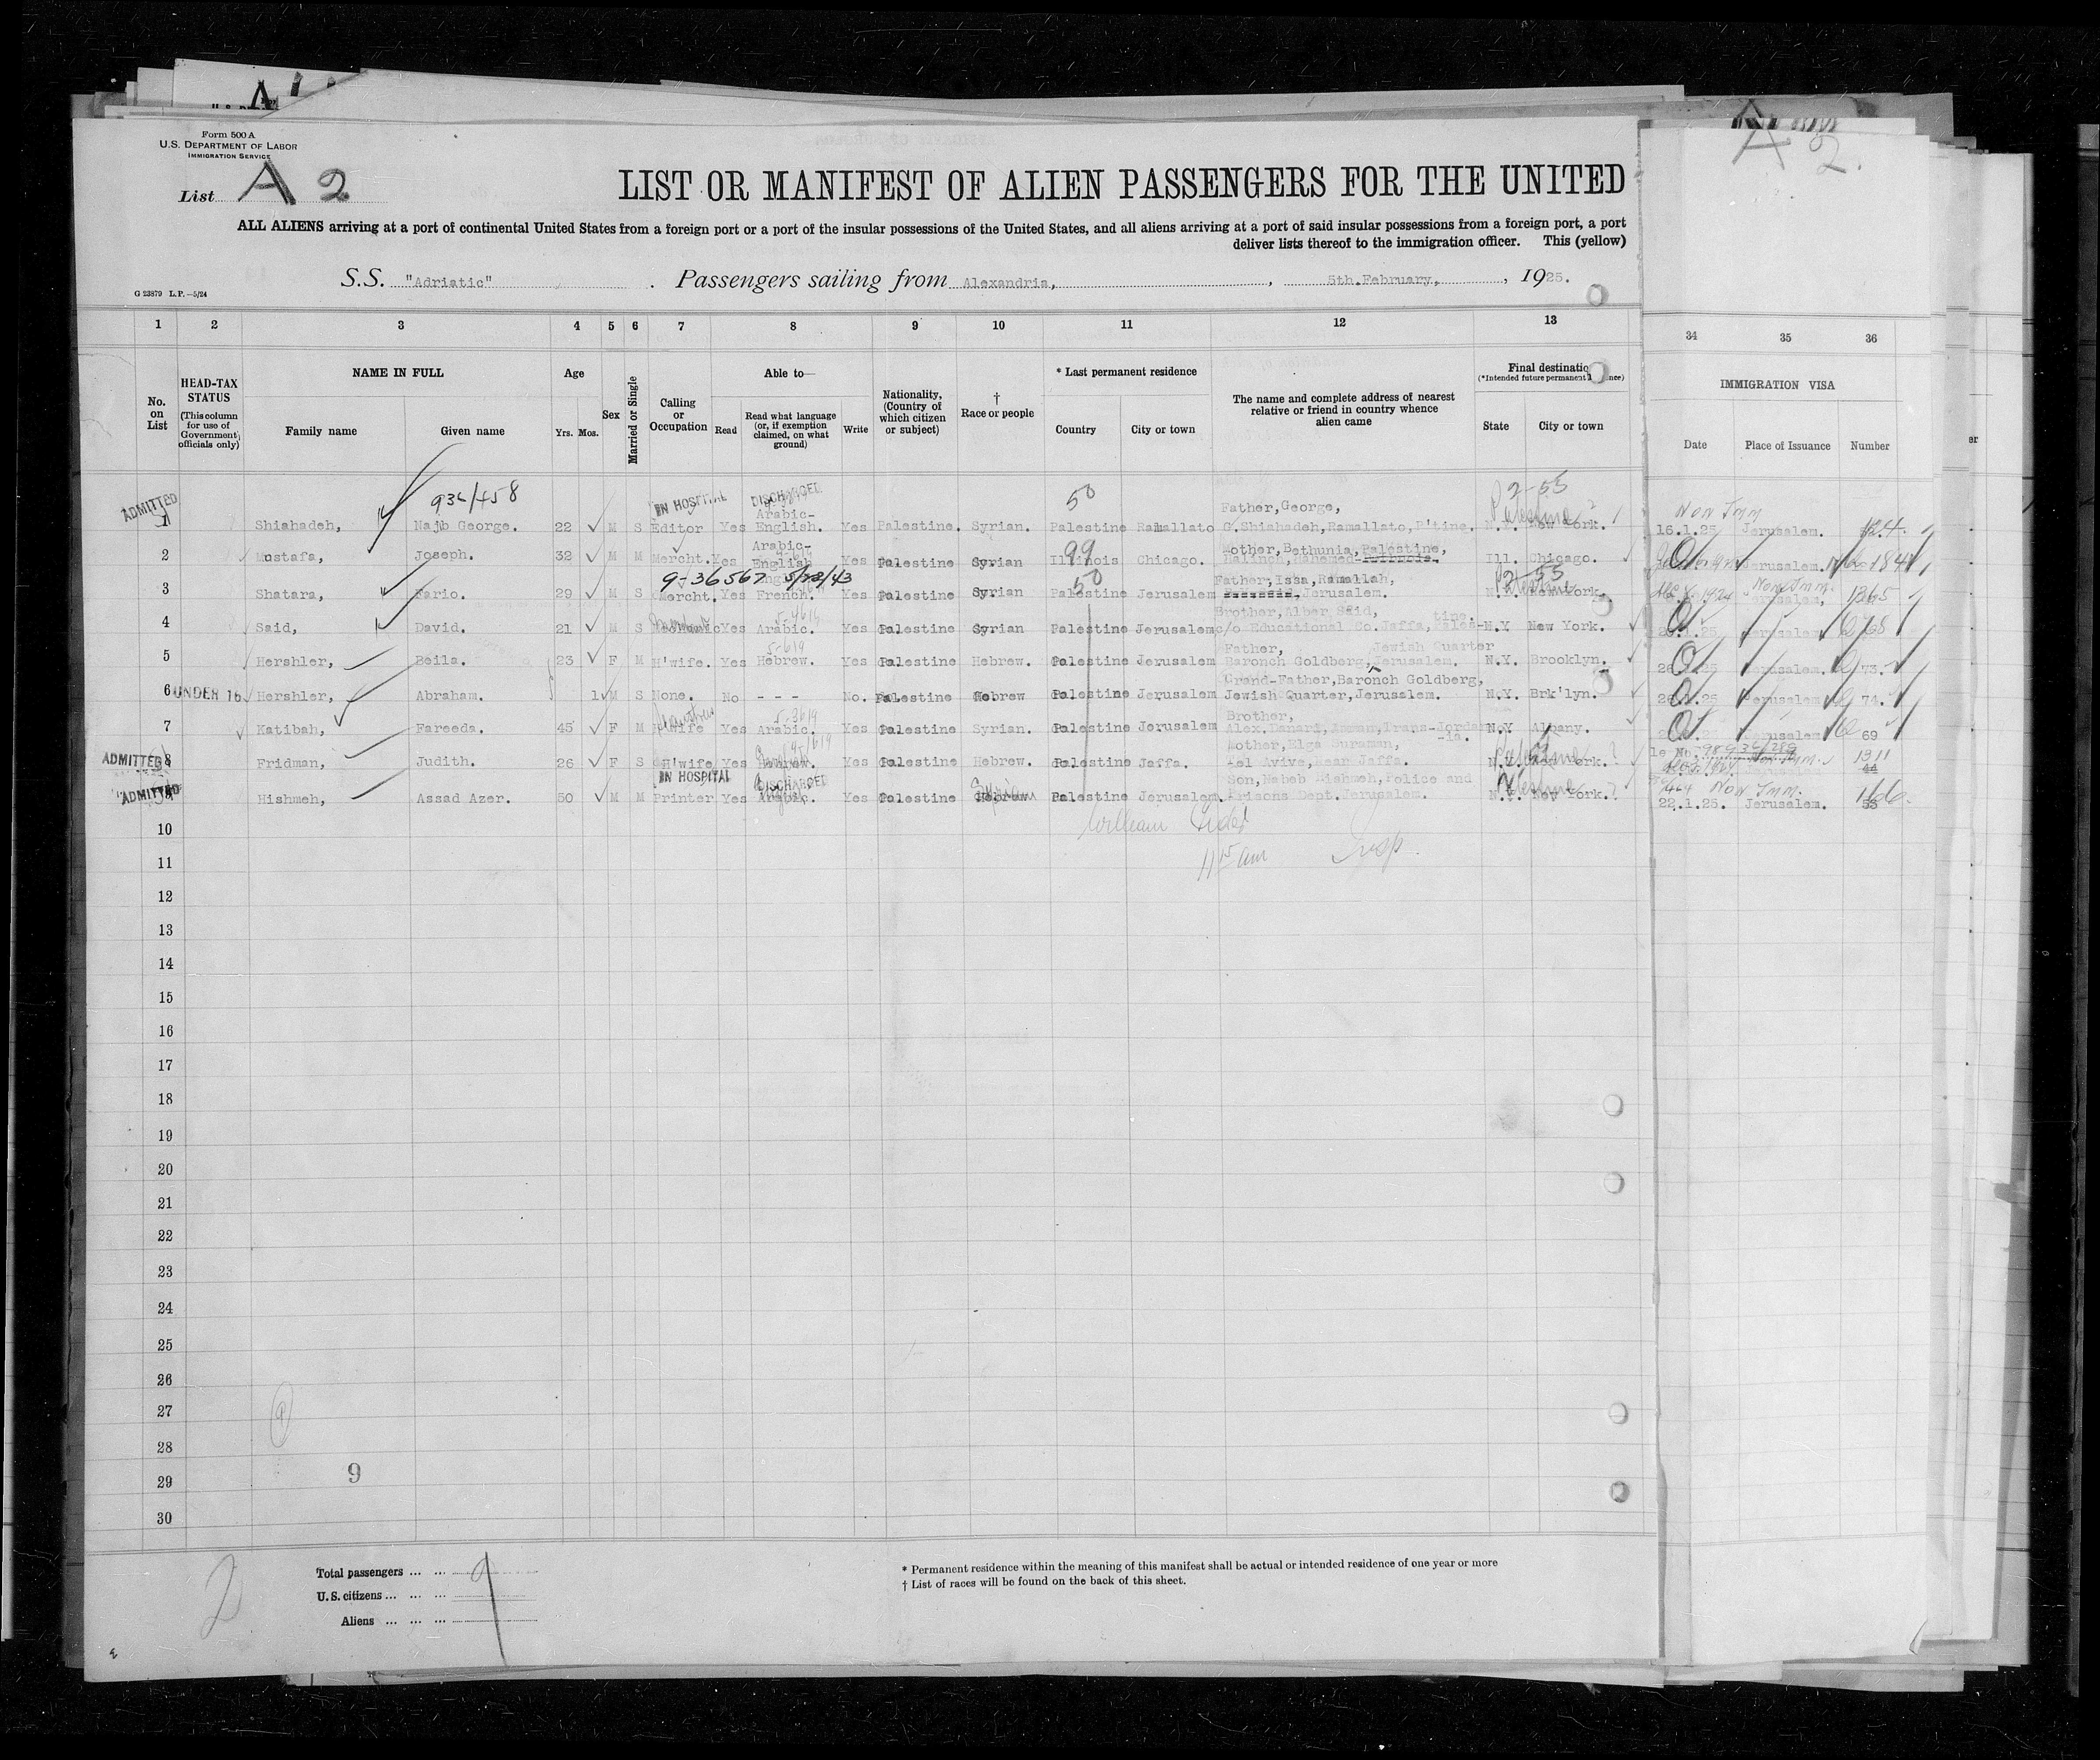 Form 500 A
U.S. DEPARTMENT OF LABOR
IMMIGRATION SERVICE
List A 2
LIST OR MANIFEST OF ALIEN PASSENGERS FOR THE UNITED
ALL ALIENS arriving at a port of continental United States from a foreign port or a port of the insular possessions of the United States, and all aliens arriving at a port of said insular possessions from a foreign port, a port
deliver lists thereof to the immigration officer. This (yellow)
S.S. "Adriatic" . Passengers sailing from Alexandria, , 5th.February, , 1925.
G 23879 L.P.—5/24
1 2 3 4 5 6 7 8 9 10 11 12 13 34 35 36
No. on List
HEAD-TAX STATUS (This column for use of Government officials only)
NAME IN FULL
Family name Given name
Age
Yrs. Mos.
Sex
Married or Single
Calling or Occupation
Able to—
Read
Read what language (or, if exemption claimed, on what ground)
Write
Nationality, (Country of which citizen or subject)
† Race or people
* Last permanent residence
Country City or town
The name and complete address of nearest relative or friend in country whence alien came
Final destination
(*Intended future permanent
State City or town
IMMIGRATION VISA
Date Place of Issuance Number
A 2.
936/458
ADMITTED IN HOSPITAL DISCHARGED 50 Father,George, 2-55 Non Imm
Arabic-
1 Shiahadeh, Najib George. 22 M S Editor Yes English. Yes Palestine. Syrian. Palestine Ramallato G.Shiahadeh,Ramallato,P'tine. N.Y. New York. 16.1.25 Jerusalem.
Arabic- 99 Mother,Bethunia,Palestine,
2 Mustafa, Joseph. 32 M M Mercht. Yes English Yes Palestine Syrian Illinois Chicago. Ill. Chicago. Jerusalem. 184
9-36567 5/22/43 50 Father,Issa,Ramallah, 2-55 Non Imm.
3 Shatara, Fario. 29 M S Mercht. Yes French. Yes Palestine Syrian Palestine Jerusalem Jerusalem. N.Y. New York. 1924 Jerusalem, 1365
Brother,Alber Said, tine.
4 Said, David. 21 M S Mechanic Yes Arabic. Yes Palestine Syrian Palestine Jerusalem c/o Educational Co.Jaffa, Pales- N.Y. New York. Jerusalem 68
Father, Jewish Quarter
5 Hershler, Beila. 23 F M H'wife. Yes Hebrew. Yes Palestine Hebrew. Palestine Jerusalem Baronch Goldberg,Jerusalem. N.Y. Brooklyn. Jerusalem. 73.
Grand-Father,Baronch Goldberg,
6 UNDER 16 Hershler, Abraham. 1 M S None. No - - - No. Palestine Hebrew Palestine Jerusalem Jewish Quarter,Jerusalem. N.Y. Brk'lyn. Jerusalem 74.
Brother,
7 Katibah, Fareeda. 45 F M H'wife Yes Arabic. Yes Palestine Syrian. Palestine Jerusalem Alex.Danari,Amman,Trans-Jordan N.Y Albany. Jerusalem 69
-ia.
8 ADMITTED Fridman, Judith. 26 F S H'wife Yes Hebrew. Yes Palestine Hebrew. Palestine Jaffa. Tel Avive,Near Jaffa. N.Y. New York. Non Imm. 1311 44
IN HOSPITAL DISCHARGED Son,Nabeh Hishmeh,Police and Non Imm.
ADMITTED Hishmeh, Assad Azer. 50 M M Printer Yes Arabic. Yes Palestine Hebrew Syrian Palestine Jerusalem. Prisons Dept.Jerusalem. N.Y. New York. 22.1.25. Jerusalem. 53 166.
10 William
11 11 15 am Insp.
12
13
14
15
16
17
18
19
20
21
22
23
24
25
26
27
28
29 9
30
2
Total passengers ... ... 9
U.S. citizens ... ... ...
Aliens ... ... ...
* Permanent residence within the meaning of this manifest shall be actual or intended residence of one year or more
† List of races will be found on the back of this sheet.